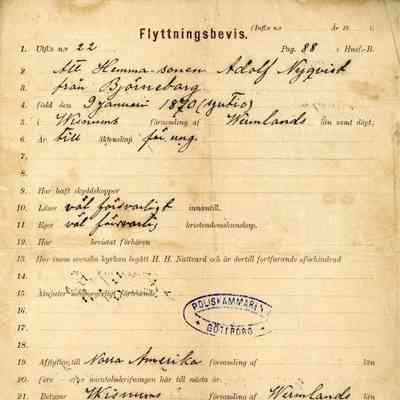 Flyttningsbevis.
(Infts n:r År 18
1. Utfts n:r 22 Pag. 88 i Husf.-B.
2. Att Hemma-sonen Adolf Nyqvist
3. från Björneborg
4. född den 9 januari 1870 (sjutio)
5. i Wisnums församling af Wermlands län samt döpt,
6. Är till äktenskap för ung.
7.
8.
9. Har haft skyddskoppor
10. Läser väl försvarligt innantill.
11. Eger väl försvarlig kristendomskunskap.
12. Har bevistat förhören
13. Har inom svenska kyrkan begått H. H. Nattvard och är dertill fortfarande oförhindrad
14.
15. Åtnjuter medborgerligt förtroende
16.
17.
18.
POLISKAMMAREN
GÖTEBORG
19. Afflyttar till Norra Amerika församling af län
20. före efter mantalsskrifningen här till nästa år.
21. Betygar Wisnums Wermlands